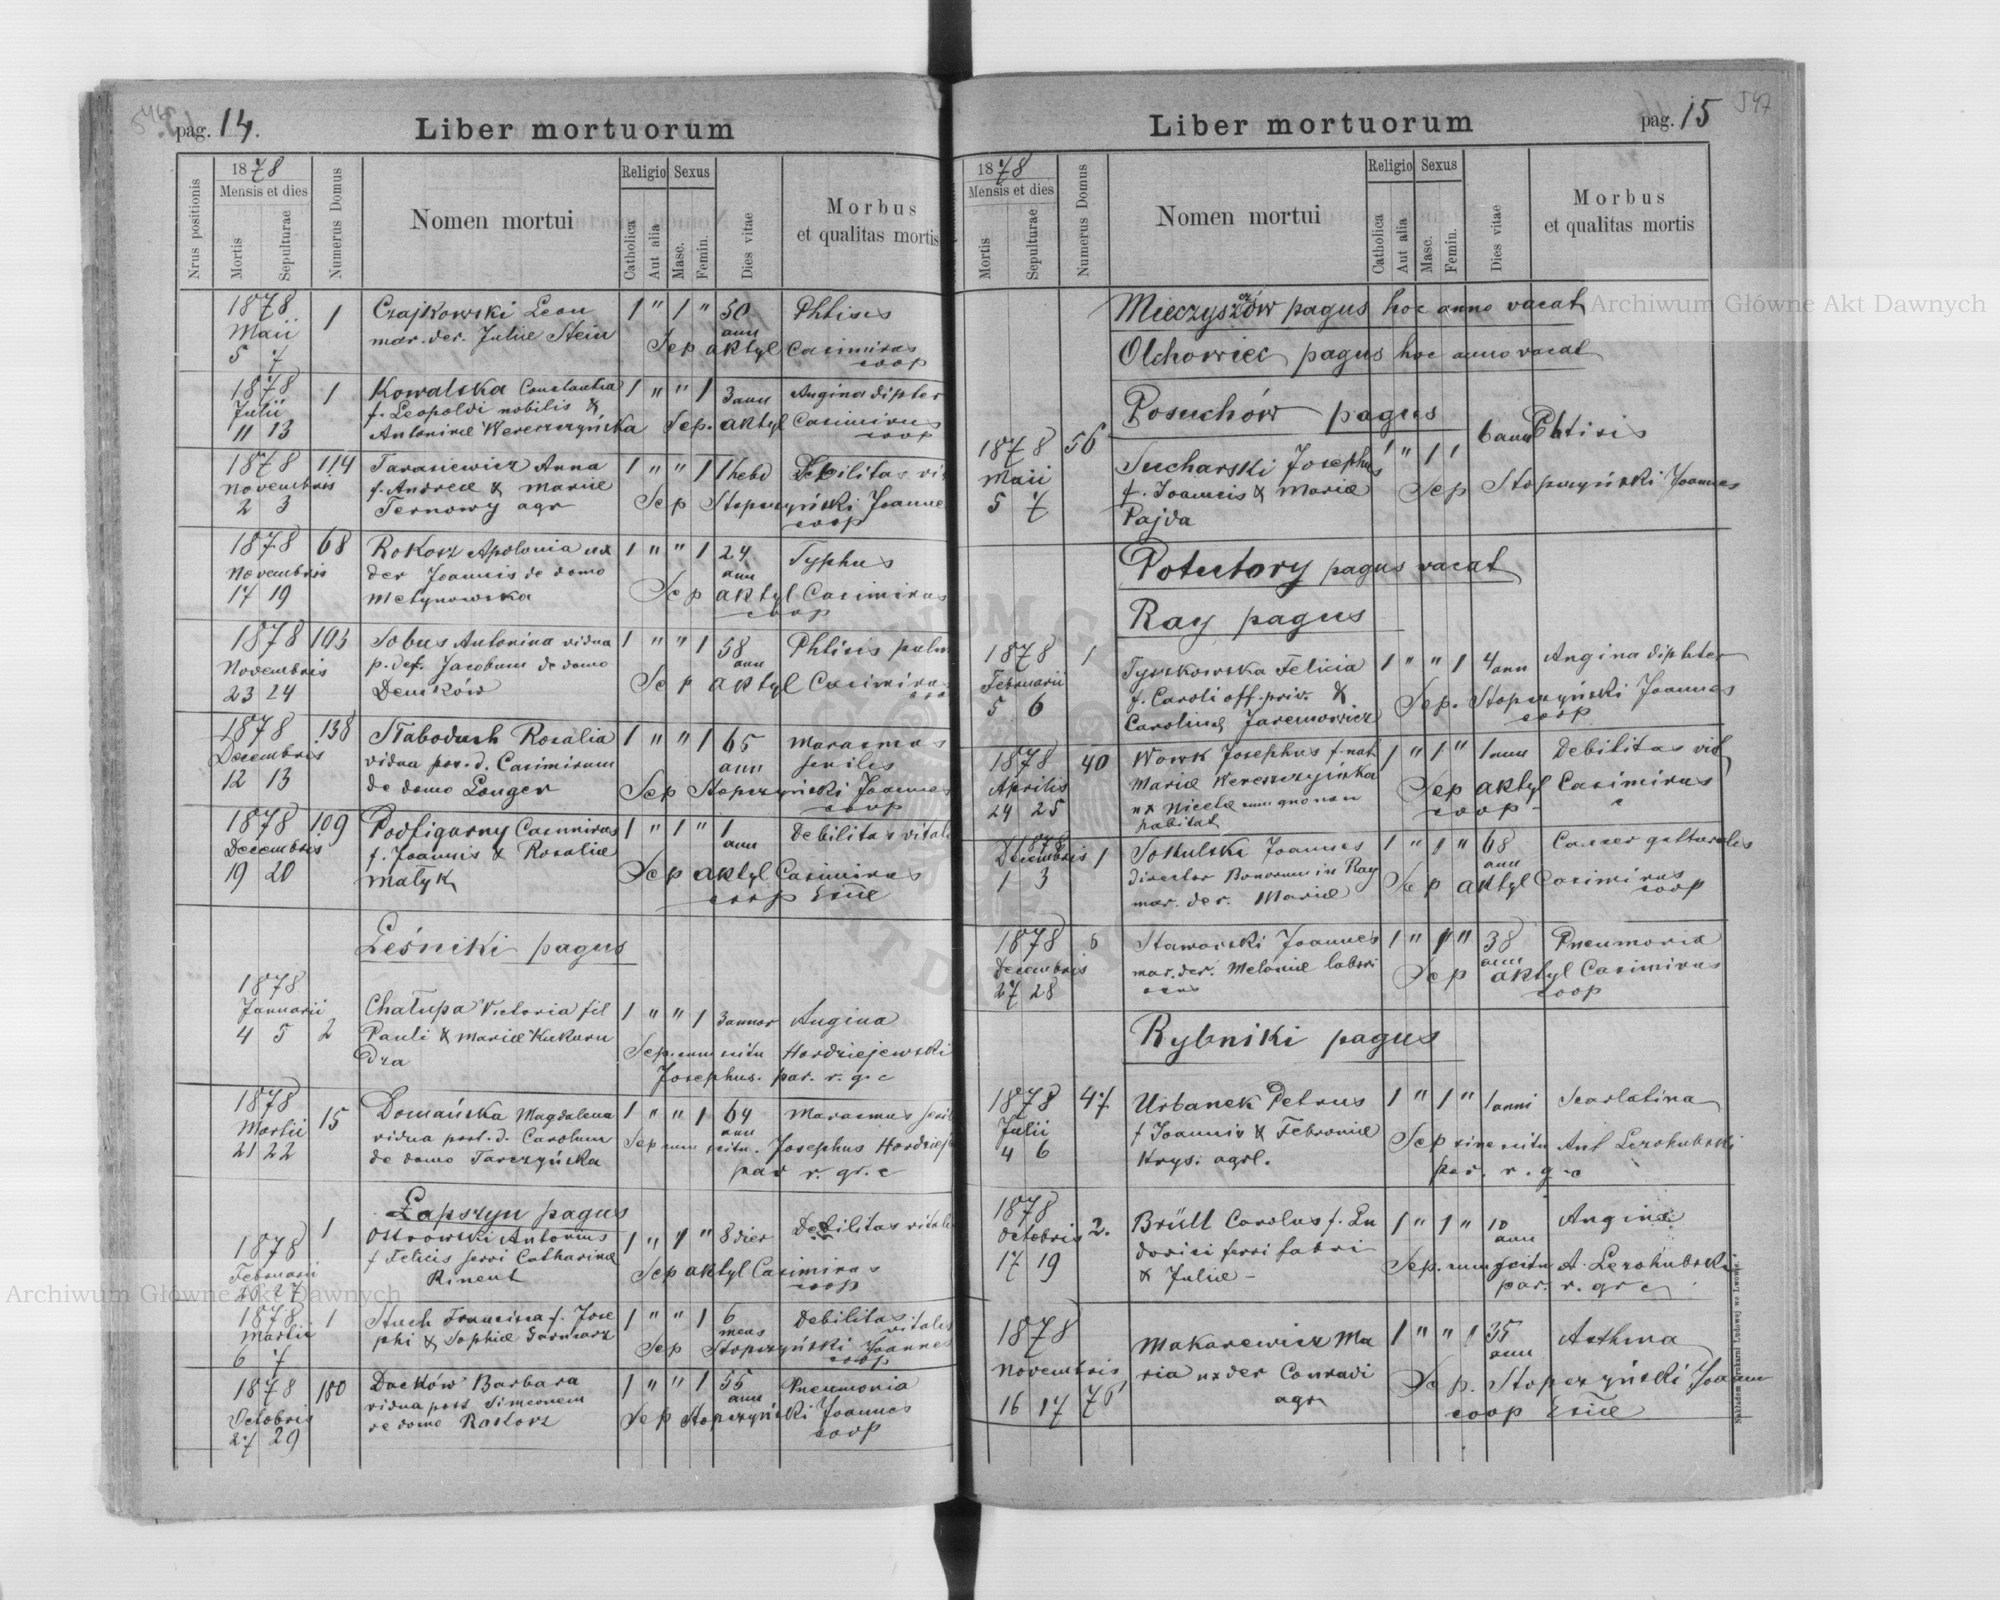 pag. 14.
Liber mortuorum
Nrus positionis
1878
Mensis et dies
Mortis
Sepulturae
Numerus Domus
Nomen mortui
Religio
Catholica
Aut alia
Sexus
Masc.
Femin.
Dies vitae
Morbus
et qualitas mortis
1878 1 Czajkowski Leon 1 " 1 " 50 Phtisis
Maii mar. der. Juliæ Stein ann
5 7 Sep aktyl Casimirus
coop
1878 1 Kowalska Constantia 1 " " 1 3 ann Angina dipter
Julii f. Leopoldi nobilis &
11 13 Antoninæ Wereszczyńska Sep. aktyl Casimirus
coop
1878 114 Tarasiewicz Anna 1 " " 1 1 hebd Debilitas vit
Novembris f. Andreæ & Mariæ
2 3 Ternowy agr Sep Stopczyński Joannes
coop
1878 68 Rokosz Apolonia ux 1 " " 1 24 Typhus
Novembris der Joannis de domo ann
17 19 Metynowska Sep aktyl Casimirus
coop
1878 103 Sobus Antonina vidua 1 " " 1 58 Phtisis pulm
Novembris p. def. Jacobum de domo ann
23 24 Demków Sep aktyl Casimirus
coop
1878 138 Słaboduch Rosalia 1 " " 1 65 Marasmus
Decembris vidua pos. d. Casimirum ann seniles
12 13 de domo Langer Sep Stopczyński Joannes
coop
1878 109 Podfigurny Casimirus 1 " 1 " 1 Debilitas vitalis
Decembris f. Joannis & Rosaliæ ann
19 20 Matyk Sep aktyl Casimirus
coop Ecciæ
Leśniki pagus
1878
Januarii Chałupa Victoria fil 1 " " 1 3 annor Angina
4 5 2 Pauli & Mariæ Kukuru
dza Sep. cum ritu Hordziejewski
Josephus. par. r. g. c
1878 15 Domańska Magdalena 1 " " 1 64 Marasmus senil
Martii vidua post. d. Carolum ann
21 22 de domo Tarczyńska Sep cum ritu. Josephus Hordziej
par r. gr. c
Łapszyn pagus
1 Ostrowski Antonius 1 " 1 " 8 dier Debilitas vitalis
1878 f Felicis servi Catharinæ
Februarii Rinent Sep aktyl Casimirus
26 27 coop
1878 1 Stuch Francisca f. Jose 1 " " 1 6 Debilitas
Martii phi & Sophiæ Garncarz mens vitalis
6 7 Sep Stopczyński Joannes
coop
1878 180 Daćków Barbara 1 " " 1 55 Pneumonia
Octobris vidua post Simeonem ann
27 29 de domo Rokosz Sep Stopczyński Joannes
coop
Liber mortuorum
pag. 15
547
1878
Mensis et dies
Mortis
Sepulturae
Numerus Domus
Nomen mortui
Religio
Catholica
Aut alia
Sexus
Masc.
Femin.
Dies vitae
Morbus
et qualitas mortis
Mieczyszczów pagus hoc anno vacat
Olchowiec pagus hoc anno vacat
Posuchów pagus
1878 56 Sucharski Josephus 1 " 1 " 6 ann Phtisis
Maii f. Joannis & Mariæ Sep Stopczyński Joannes
5 7 Pajda
Potutory pagus vacat
Ray pagus
1878 1 Tyszkowska Felicia 1 " " 1 4 ann Angina diphter
Februarii f. Caroli off. priv. &
5 6 Carolinæ Jaremowicz Sep. Stopczyński Joannes
coop
1878 40 Wowk Josephus f. nat 1 " 1 " 1 ann Debilitas vit
Aprilis Mariæ Wereszczyńska
24 25 ux Nicetæ cum quo non Sep aktyl Casimirus
habitat coop
1878
Decembris 1 Sokulski Joannes 1 " 1 " 68 Cancer gutturalis
1 3 director Bonorum in Ray ann
mar. der. Mariæ Sep aktyl Casimirus
coop
1878 5 Stawarski Joannes 1 " 1 " 38 Pneumonia
Decembris mar. der. Melaniæ labori ann
27 28 osus Sep aktyl Casimirus
coop
Rybniki pagus
1878 47 Urbanek Petrus 1 " 1 " 1 anni Scarlatina
Julii f Joannis & Febroniæ
4 6 Krys. agrl. Sep sine ritu Ant Lerohubski
par. r. g c
1878 2. Brüll Carolus f. Lu 1 " 1 " 10 Angina
Octobris dovici ferri fabri ann
17 19 & Juliæ Sep. cum ritu A. Lerohubski
par. r. gr c
1878 Makarewicz Ma 1 " " 1 35 Asthma
Novembris ria ux der Conradi ann
16 17 76 agr Sep. Stopczyński Joann
coop Ecciæ
Archiwum Główne Akt Dawnych
Archiwum Główne Akt Dawnych